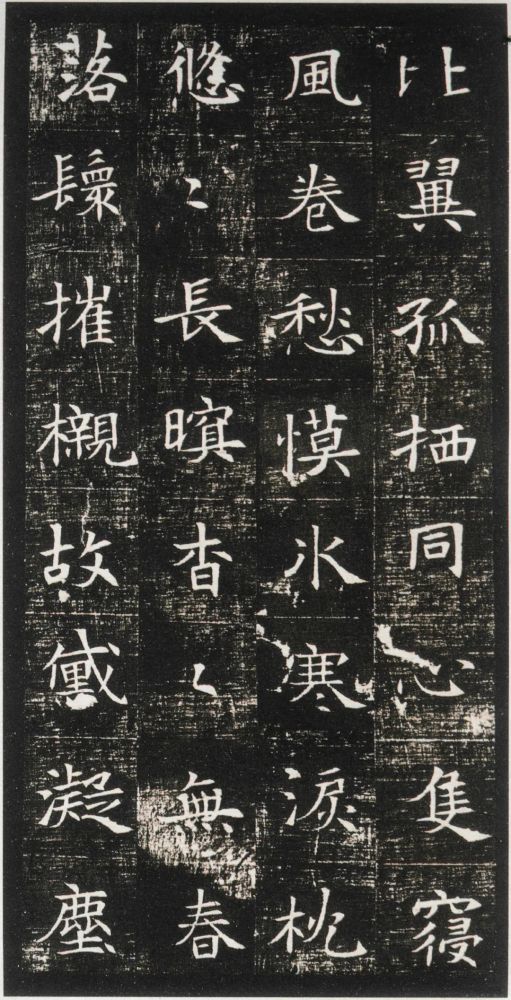 比翼孤栖同心隻寢
風卷愁慔氷寒淚枕
悠〻長暝杳〻無春
落鬟摧櫬故黛凝塵